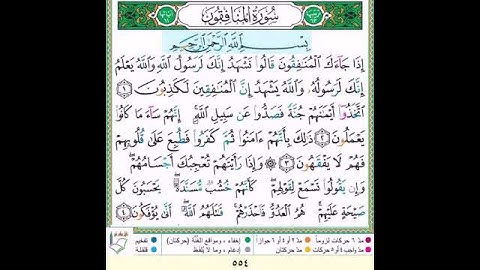 سُورَةُ الْمُنَافِقُونَ
بِسْمِ اللَّهِ الرَّحْمَٰنِ الرَّحِيمِ
إِذَا جَاءَكَ الْمُنَافِقُونَ قَالُوا نَشْهَدُ إِنَّكَ لَرَسُولُ اللَّهِ وَاللَّهُ يَعْلَمُ
إِنَّكَ لَرَسُولُهُ وَاللَّهُ يَشْهَدُ إِنَّ الْمُنَافِقِينَ لَكَاذِبُونَ ١
اتَّخَذُوا أَيْمَانَهُمْ جُنَّةً فَصَدُّوا عَن سَبِيلِ اللَّهِ إِنَّهُمْ سَاءَ مَا كَانُوا
يَعْمَلُونَ ٢ ذَٰلِكَ بِأَنَّهُمْ ءَامَنُوا ثُمَّ كَفَرُوا فَطُبِعَ عَلَىٰ قُلُوبِهِمْ
فَهُمْ لَا يَفْقَهُونَ ٣ وَإِذَا رَأَيْتَهُمْ تُعْجِبُكَ أَجْسَامُهُمْ
وَإِن يَقُولُوا تَسْمَعْ لِقَوْلِهِمْ كَأَنَّهُمْ خُشُبٌ مُّسَنَّدَةٌ يَحْسَبُونَ كُلَّ
صَيْحَةٍ عَلَيْهِمْ هُمُ الْعَدُوُّ فَاحْذَرْهُمْ قَاتَلَهُمُ اللَّهُ أَنَّىٰ يُؤْفَكُونَ ٤
مدّ ٦ حركات لزوماً مدّ ٢ أو ٤ أو ٦ جوازاً إخفاء، ومواقع الغُنَّة (حركتان) تفخيم
مدّ واجب ٤ أو ٥ حركات مدّ حركتان إدغام، وما لا يُلفَظ قلقلة
٥٥٤